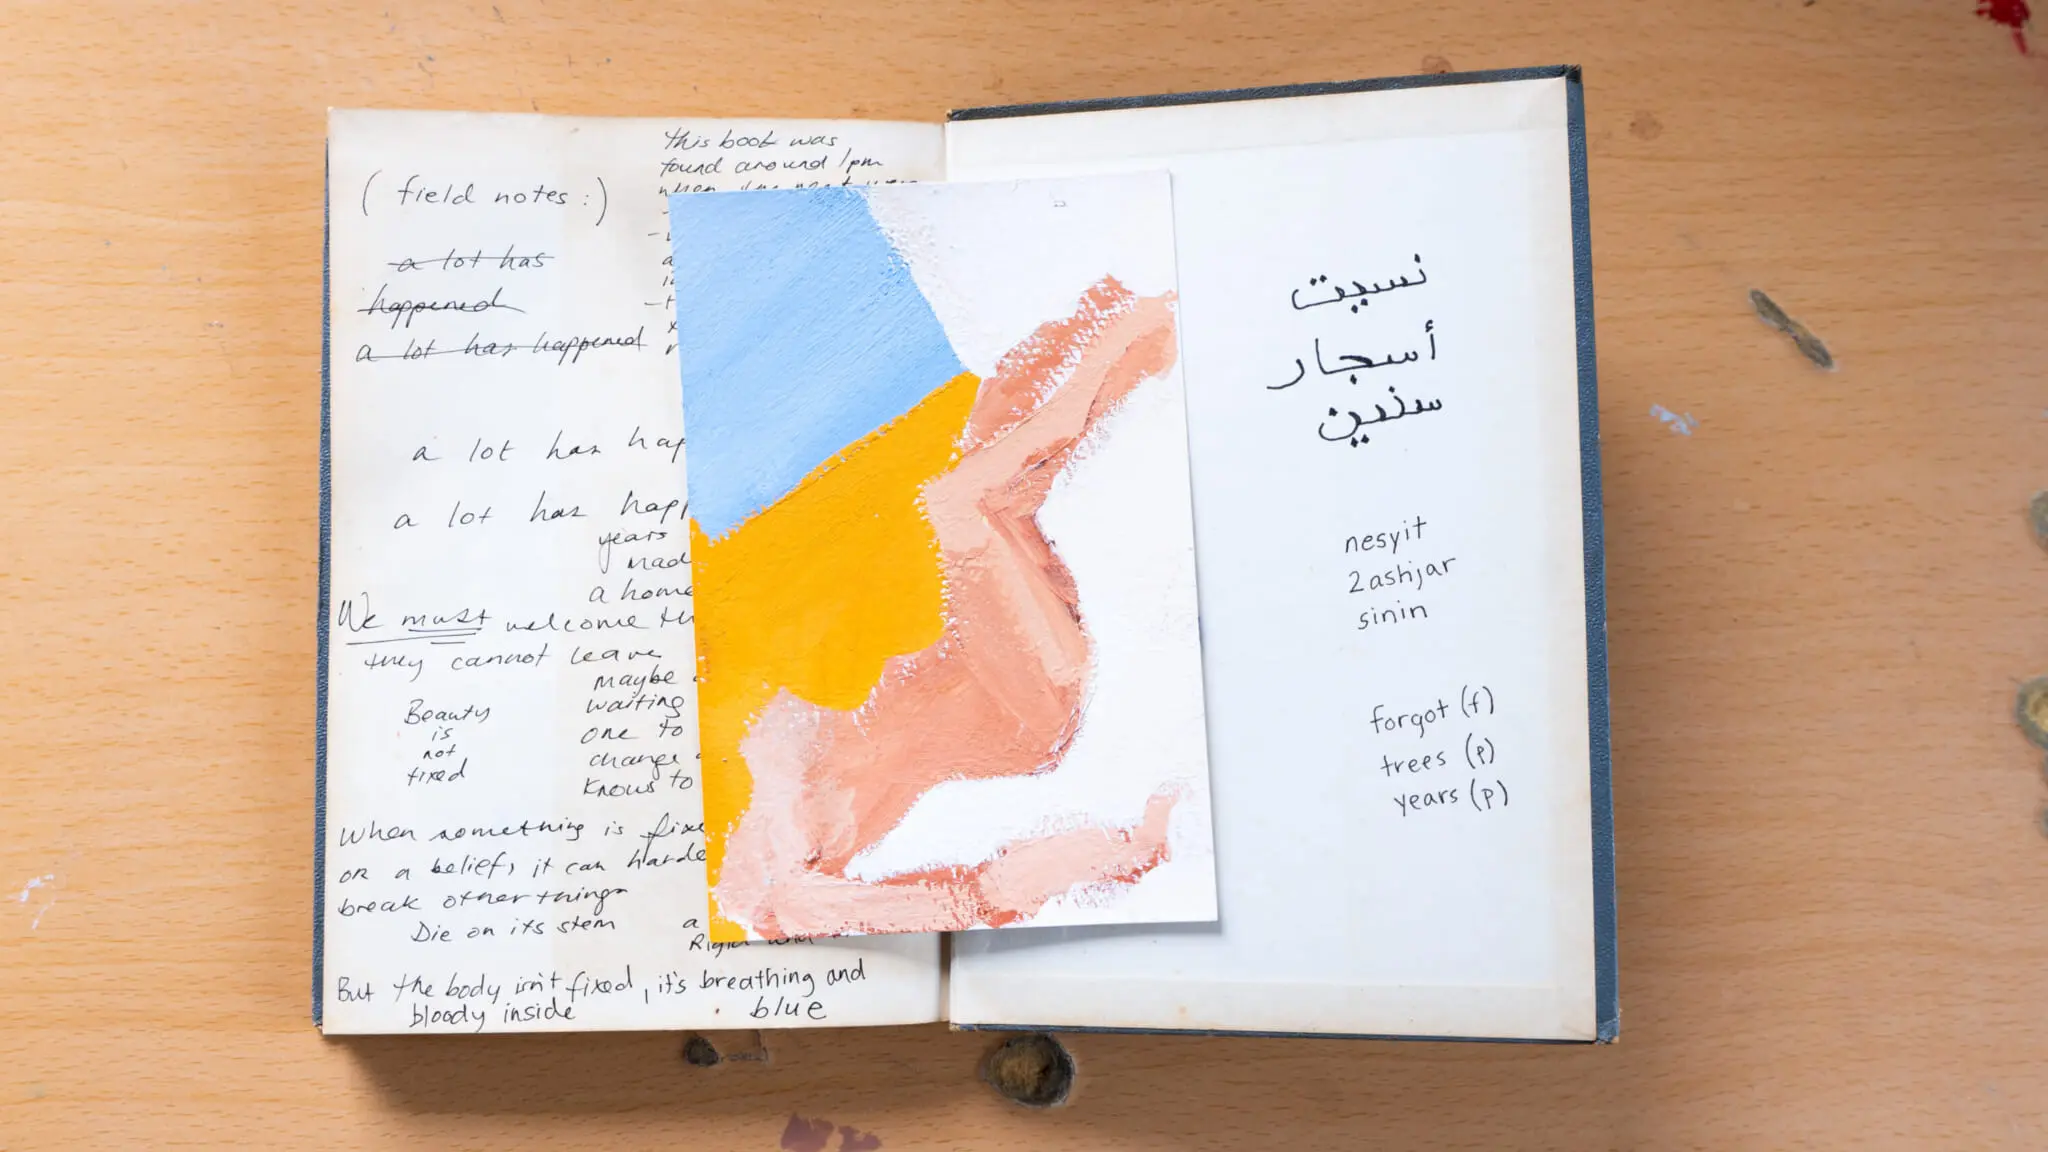 this book was
found around 1pm
when
(field notes:)
a lot has
happened
a lot has happened
a lot has
a lot has
years
mad
a home
We must welcome
they cannot leave
maybe
waiting
one to
change
knows to
Beauty
is
not
fixed
when something is
or a belief, it can
break other things
Die on its stem
a
But the body isn't fixed, it's breathing and
bloody inside
blue
نسيت
أسجار
سنين
nesyit
2ashjar
sinin
forgot (f)
trees (p)
years (p)